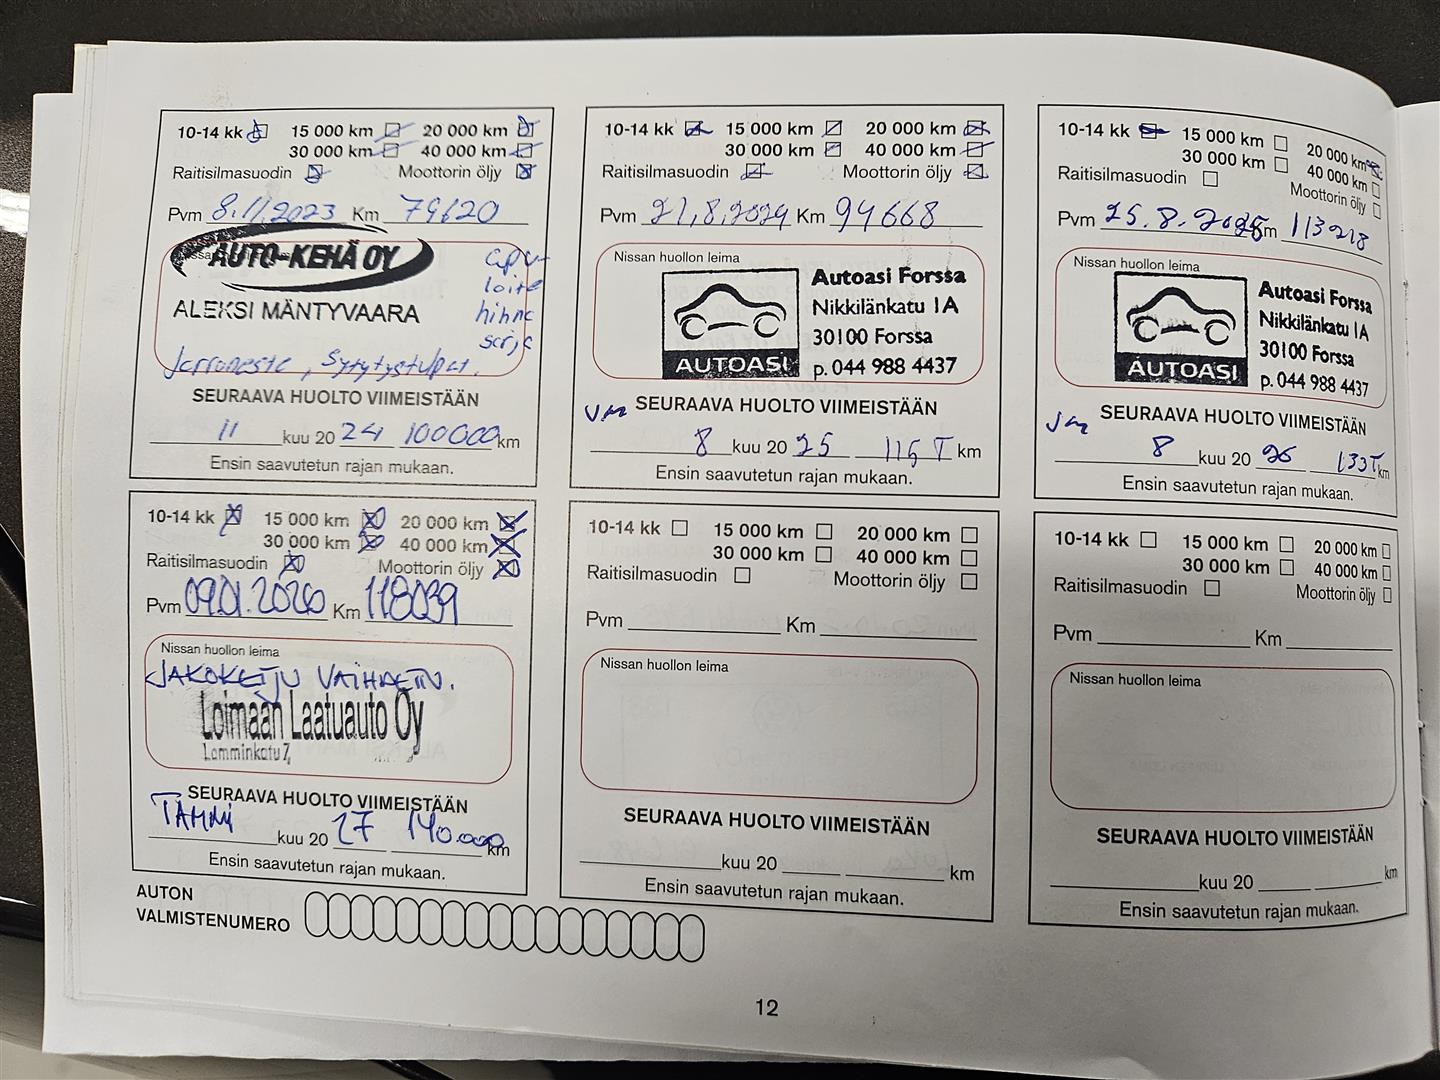 10-14 kk 15 000 km 20 000 km
30 000 km 40 000 km
Raitisilmasuodin Moottorin öljy
Pvm 8.11.2023 Km 79620
AUTO-KEHÄ OY
ALEKSI MÄNTYVAARA
apu-
laite
hihna
sarja
Jarruneste, Sytytystulpat.
SEURAAVA HUOLTO VIIMEISTÄÄN
11 kuu 20 24 100000 km
Ensin saavutetun rajan mukaan.
10-14 kk 15 000 km 20 000 km
30 000 km 40 000 km
Raitisilmasuodin Moottorin öljy
Pvm 21.8.2024 Km 94668
Nissan huollon leima
Autoasi Forssa
Nikkilänkatu 1A
30100 Forssa
AUTOASI p. 044 988 4437
SEURAAVA HUOLTO VIIMEISTÄÄN
8 kuu 20 25 115 T km
Ensin saavutetun rajan mukaan.
10-14 kk 15 000 km 20 000 km
30 000 km 40 000 km
Raitisilmasuodin Moottorin öljy
Pvm 25.8.2025 Km 113218
Nissan huollon leima
Autoasi Forssa
Nikkilänkatu 1A
30100 Forssa
AUTOASI p. 044 988 4437
SEURAAVA HUOLTO VIIMEISTÄÄN
8 kuu 20 26 133T km
Ensin saavutetun rajan mukaan.
10-14 kk 15 000 km 20 000 km
30 000 km 40 000 km
Raitisilmasuodin Moottorin öljy
Pvm 09.01.2026 Km 118039
Nissan huollon leima
JAKOKETJU VAIHDETTU.
Loimaan Laatuauto Oy
Lamminkatu 7,
SEURAAVA HUOLTO VIIMEISTÄÄN
TAMMI kuu 20 27 140.000 km
Ensin saavutetun rajan mukaan.
10-14 kk 15 000 km 20 000 km
30 000 km 40 000 km
Raitisilmasuodin Moottorin öljy
Pvm Km
Nissan huollon leima
SEURAAVA HUOLTO VIIMEISTÄÄN
kuu 20 km
Ensin saavutetun rajan mukaan.
10-14 kk 15 000 km 20 000 km
30 000 km 40 000 km
Raitisilmasuodin Moottorin öljy
Pvm Km
Nissan huollon leima
SEURAAVA HUOLTO VIIMEISTÄÄN
kuu 20 km
Ensin saavutetun rajan mukaan.
AUTON
VALMISTENUMERO
12